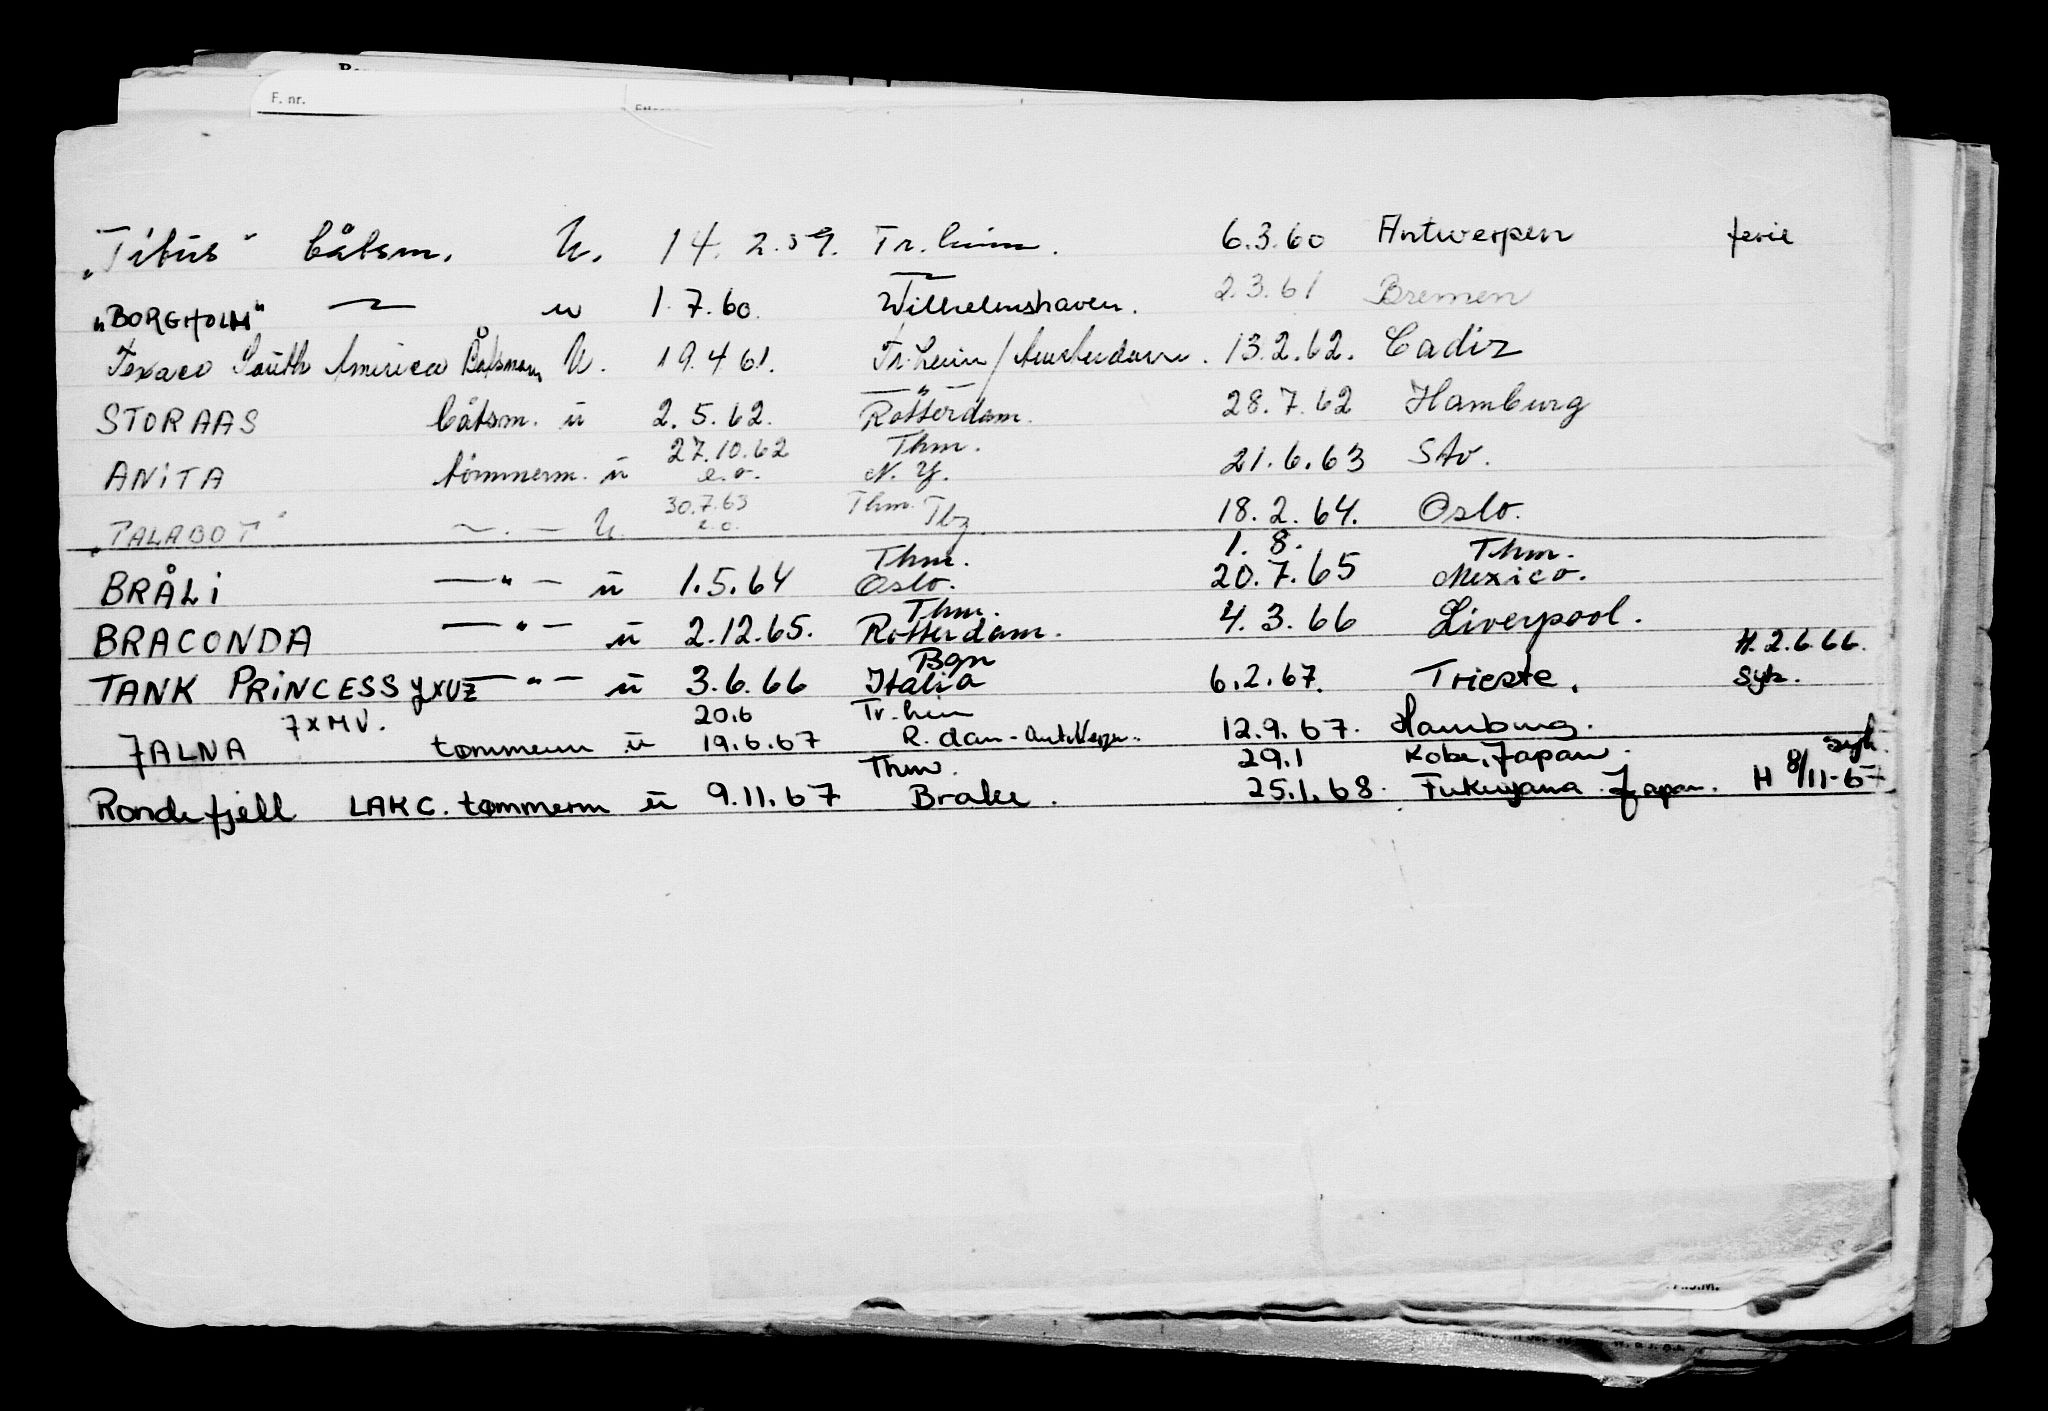 F. nr.
„Titus" båtsm. U. 14.2.59. Tr.heim. 6.3.60 Antwerpen ferie
„BORGHOLM" — u 1.7.60. — Wilhelmshaven. 2.3.61 Bremen
Texaco South America Båtsmann U. 19.4 61. Tr.heim/Amsterdam. 13.2.62. Cadiz
STORAAS båtsm. u 2.5.62. —„— Rotterdam. 28.7.62 Hamburg
27.10.62 Thm.
ANITA tömmerm. u e.o. N.Y. 21.6.63 Stv.
30.7.63 Thm.
„TALABOT" —.— U. e.o. Tbg. 18.2.64. Oslo.
Thm. 1.8. Thm.
BRÅLI —"— u 1.5.64 Oslo. 20.7.65 Mexico.
Thm.
BRACONDA —"— u 2.12.65. Rotterdam. 4.3.66 Liverpool.
Bgn H. 2.6.66.
TANK PRINCESS —"— u 3.6.66 Italia 6.2.67. Trieste. Syk.
7XMV. 20.6 Tr.heim
JALNA tømmerm u 19.6.67 R.dam-Antwerpn. 12.9.67. Hamburg.
Thm. 29.1 Kobe, Japan. syk.
Rondefjell LAKC. tømmerm u 9.11.67 Brake. 25.1.68. Fukuyama Japan. H 8/11-67